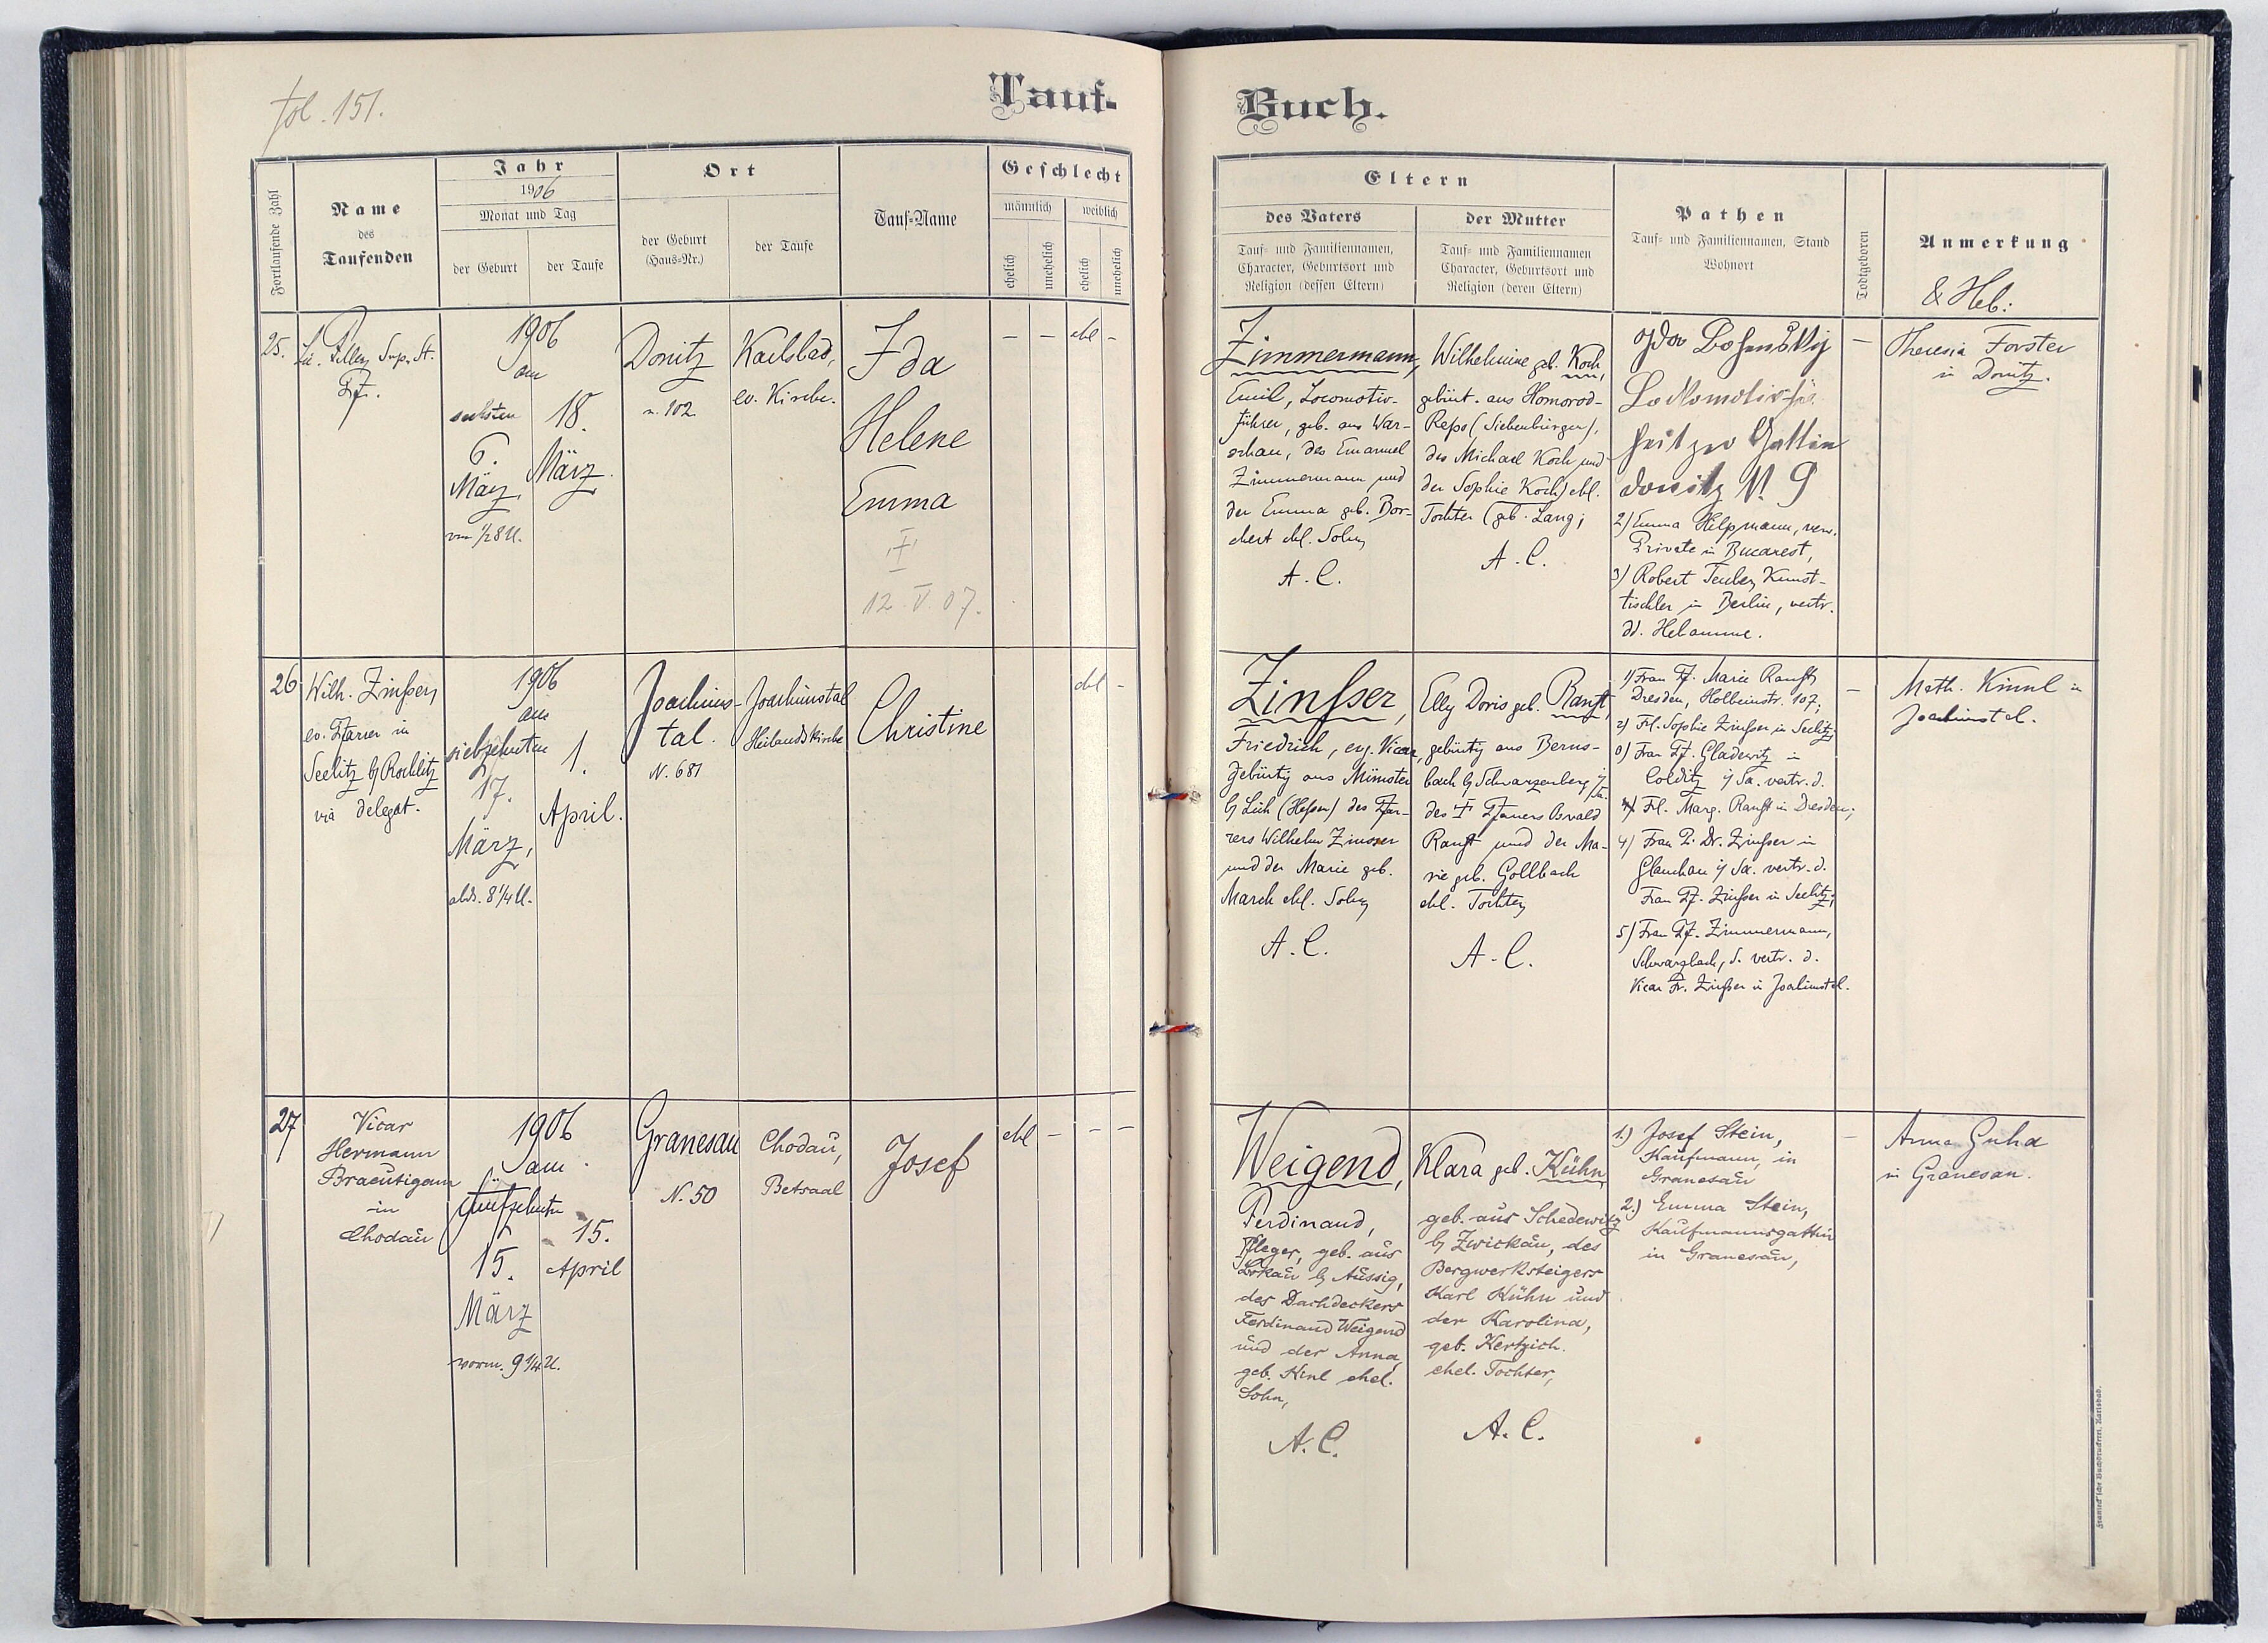 fol. 151.
Tauf-
Buch.
Fortlaufende Zahl
Name
des
Taufenden
Jahr
1906
Monat und Tag
der Geburt
der Taufe
Ort
der Geburt
(Haus-Nr.)
der Taufe
Tauf-Name
Geschlecht
männlich
weiblich
ehelich
unehelich
ehelich
unehelich
Eltern
des Vaters
Tauf- und Familiennamen,
Character, Geburtsort und
Religion (dessen Eltern)
der Mutter
Tauf- und Familiennamen
Character, Geburtsort und
Religion (deren Eltern)
Pathen
Tauf- und Familiennamen, Stand
Wohnort
Todtgeboren
Anmerkung
& Heb:
25.
Pf.
1906
am
sechsten
6.
März
vm 1/2 8 U.
18.
März
Donitz
n. 102
Karlsbad,
ev. Kirche.
Ida
Helene
Emma
12. V. 07.
–
–
ehl
–
Zimmermann,
Emil, Locomotiv-
führer, geb. aus War-
schau, des Emanuel
Zimmermann und
der Emma geb. Bor-
chert ehl. Sohn
A. C.
Wilhelmine geb. Koch,
gebürt. aus Homorod-
Reps (Siebenbürgen),
des Michael Koch und
der Sophie Koch) ehl.
Tochter (geb. Lang;
A. C.
Gattin
Donitz N. 9
2) Emma Hilpmann, verw.
Private in Bucarest,
3) Robert Teuber, Kunst-
tischler in Berlin, vertr.
dd. Hebamme.
–
Theresia Forster
in Donitz.
26
Wilh. Zinßer,
ev. Pfarrer in
Seelitz b/ Rochlitz
via delegat.
1906
am
siebzehnten
17.
März,
abds. 8 1/4 U.
1.
April.
Joachims-
tal.
N. 681
Joachimstal
Heilandskirche
Christine
ehl
–
Zinßer,
Friedrich, evg. Vicar,
gebürtig aus Münster
b/ Lich (Hessen) des Pfar-
rers Wilhelm Zinsser
und der Marie geb.
March ehl. Sohn
A. C.
Elly Doris geb. Ranft,
gebürtig aus Berns-
bach b/ Schwarzenberg i/
Sa.
des † Pfarrers Oswald
Ranft und der Ma-
rie geb. Gollbach
ehl. Tochter
A. C.
1) Frau Pf. Marie Ranft,
Dresden, Holbeinstr. 107;
2) Frl. Sophie Zinßer in Seelitz;
3) Frau Pf. Gladewitz in
Colditz i/ Sa. vertr. d.
Frl. Marg. Ranft in Dresden;
4) Frau P. Dr. Zinßer in
Glauchau i/ Sa. vertr. d.
Frau Pf. Zinßer in Seelitz;
5) Frau Pf. Zimmermann,
Schwarzbach, d. vertr. d.
Vicar Fr. Zinßer in Joachimstal.
–
Math. Kinnl in
Joachimstal.
27
Vicar
Hermann
Braeutigam
in
Chodau
1906
am
fünfzehnten
15.
März
vorm. 9 1/4 U.
15.
April
Granesau
N. 50
Chodau,
Betsaal
Josef
ehl
–
–
–
Weigend,
Ferdinand,
Pfleger, geb. aus
b/ Aussig,
des Dachdeckers
Ferdinand Weigend
und der Anna,
geb. Kinl ehel.
Sohn,
A. C.
Klara geb. Kühn,
geb. aus Schedewitz
b/ Zwickau, des
Bergwerksteigers
Karl Kühn und
der Karolina,
geb. Kertzich.
ehel. Tochter,
A. C.
1.) Josef Stein,
Kaufmann, in
Granesau
2.) Emma Stein,
Kaufmannsgattin
in Granesau,
–
Anna Guha
in Granesau.